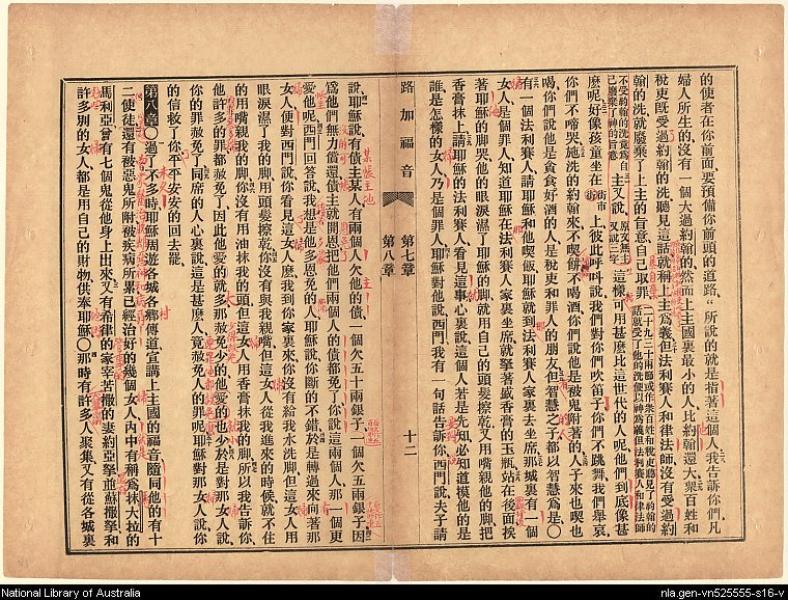 的使者在你前面、要預備你前頭的道路、“所說的就是指著這個人、我告訴你們、凡
婦人所生的、沒有一個大過約翰的、然而上主國裏最小的人、比約翰還大、衆百姓和
稅吏旣受過約翰的洗、聽見這話、就稱上主爲義、但法利賽人和律法師、沒有受過約
翰的洗、就廢棄了上主的旨意、自己取罪、二十九三十兩節或作衆百姓和稅吏聽見了約翰的話旣受了他的洗便以神爲義但法利賽人和律法師
不受約翰的洗竟爲自己廢棄了神的旨意主又說、原文無主又說三字這樣可用甚麼比這世代的人呢、他們到底像甚
麼呢、好像孩童坐在街市街市上、彼此呼叫說、我們對你們吹笛子、你們不跳舞、我們舉哀、
你們不啼哭、施洗的約翰來、不喫餠、不喝酒、你們說他是被鬼附著的、人子來、也喫也
喝、你們說他是貪食好酒的人、是稅吏和罪人的朋友、但智慧之子、都以智慧爲是、〇
有一個法利賽人、請耶穌和他喫飯、耶穌就到法利賽人家裏去坐席、那城裏有一個
女人、是個罪人、知道耶穌在法利賽人家裏坐席、就拏著盛香膏的玉瓶、站在後面、挨
著耶穌的脚哭、他的眼淚濕了耶穌的脚、就用自己的頭髮擦乾、又用嘴親他的脚、把
香膏抹上、請耶穌的法利賽人、看見這事、心裏說、這個人若是先知、必知道摸他的是
誰、是怎樣的女人、乃是個罪人、耶穌對他說、西門、我有一句話告訴你、西門說、夫子請
路加福音 第七章 十二
第八章
說、耶穌說、有債主、某人有兩個人欠他的債、一個欠五十兩銀子、一個欠五兩銀子、因
爲他們無力償還、債主就開恩、把他們兩個人的債都免了、你說這兩個人、那一個更
愛他呢、西門回答說、我想是他多恩免的人、耶穌說、你斷的不錯、於是轉過來向著那
女人、便對西門說、你看見這女人麼、我到你家裏來、你沒有給我水洗脚、但這女人用
眼淚濕了我的脚、用頭髮擦乾、你沒有與我親嘴、但這女人從我進來的時候、就不住
的用嘴親我的脚、你沒有用油抹我的頭、但這女人用香膏抹我的脚、所以我告訴你、
他許多的罪都赦免了、因此他愛的就多、那赦免少的、他愛的也少、於是對那女人說、
你的罪赦免了、同席的人心裏說、這是甚麼人、竟赦免人的罪呢、耶穌對那女人說、你
的信救了你、平平安安的回去罷、
第八章〇過了不多時、耶穌周遊各城各鄉傳道、宣講上主國的福音、隨同他的有十
二使徒、還有被惡鬼所附、被疾病所累、已經治好的幾個女人、內中有稱爲抹大拉的
馬利亞、曾有七個鬼從他身上出來、又有希律的家宰苦撒的妻約亞拏、並蘇撒拏、和
許多別的女人、都是用自己的財物供奉耶穌、〇那時有許多人聚集、又有從各城裏
National Library of Australia
nla.gen-vn525555-s16-v